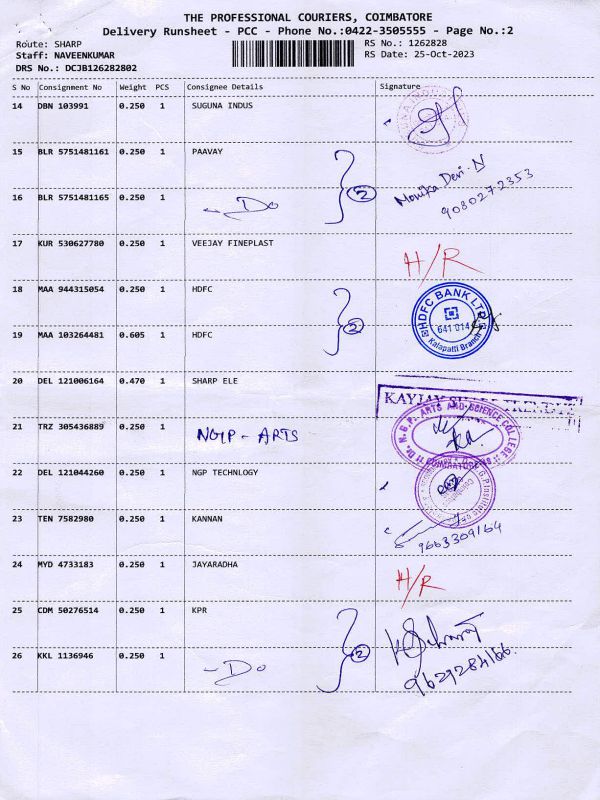 THE PROFESSIONAL COURIERS, COIMBATORE
Delivery Runsheet - PCC - Phone No.:0422-3505555 - Page No.:2
Route: SHARP RS No.: 1262828
Staff: NAVEENKUMAR RS Date: 25-Oct-2023
DRS No.: DCJB126282802
S No Consignment No Weight PCS Consignee Details Signature
14 DBN 103991 0.250 1 SUGUNA INDUS
15 BLR 5751481161 0.250 1 PAAVAY
16 BLR 5751481165 0.250 1 -Do 2 Monika Devi-N
9080272353
17 KUR 530627780 0.250 1 VEEJAY FINEPLAST H/R
18 MAA 944315054 0.250 1 HDFC
19 MAA 103264481 0.605 1 HDFC 2 HDFC BANK LTD
641 014
Kalapatti Branch
20 DEL 121006164 0.470 1 SHARP ELE KAYJAY
21 TRZ 305436889 0.250 1 NGP - ARTS Dr. N.G.P. ARTS AND SCIENCE COLLEGE
COIMBATORE
22 DEL 121044260 0.250 1 NGP TECHNLOGY
23 TEN 7582980 0.250 1 KANNAN 9663309164
24 MYD 4733183 0.250 1 JAYARADHA H/R
25 CDM 50276514 0.250 1 KPR
26 KKL 1136946 0.250 1 -Do 2 9629284166